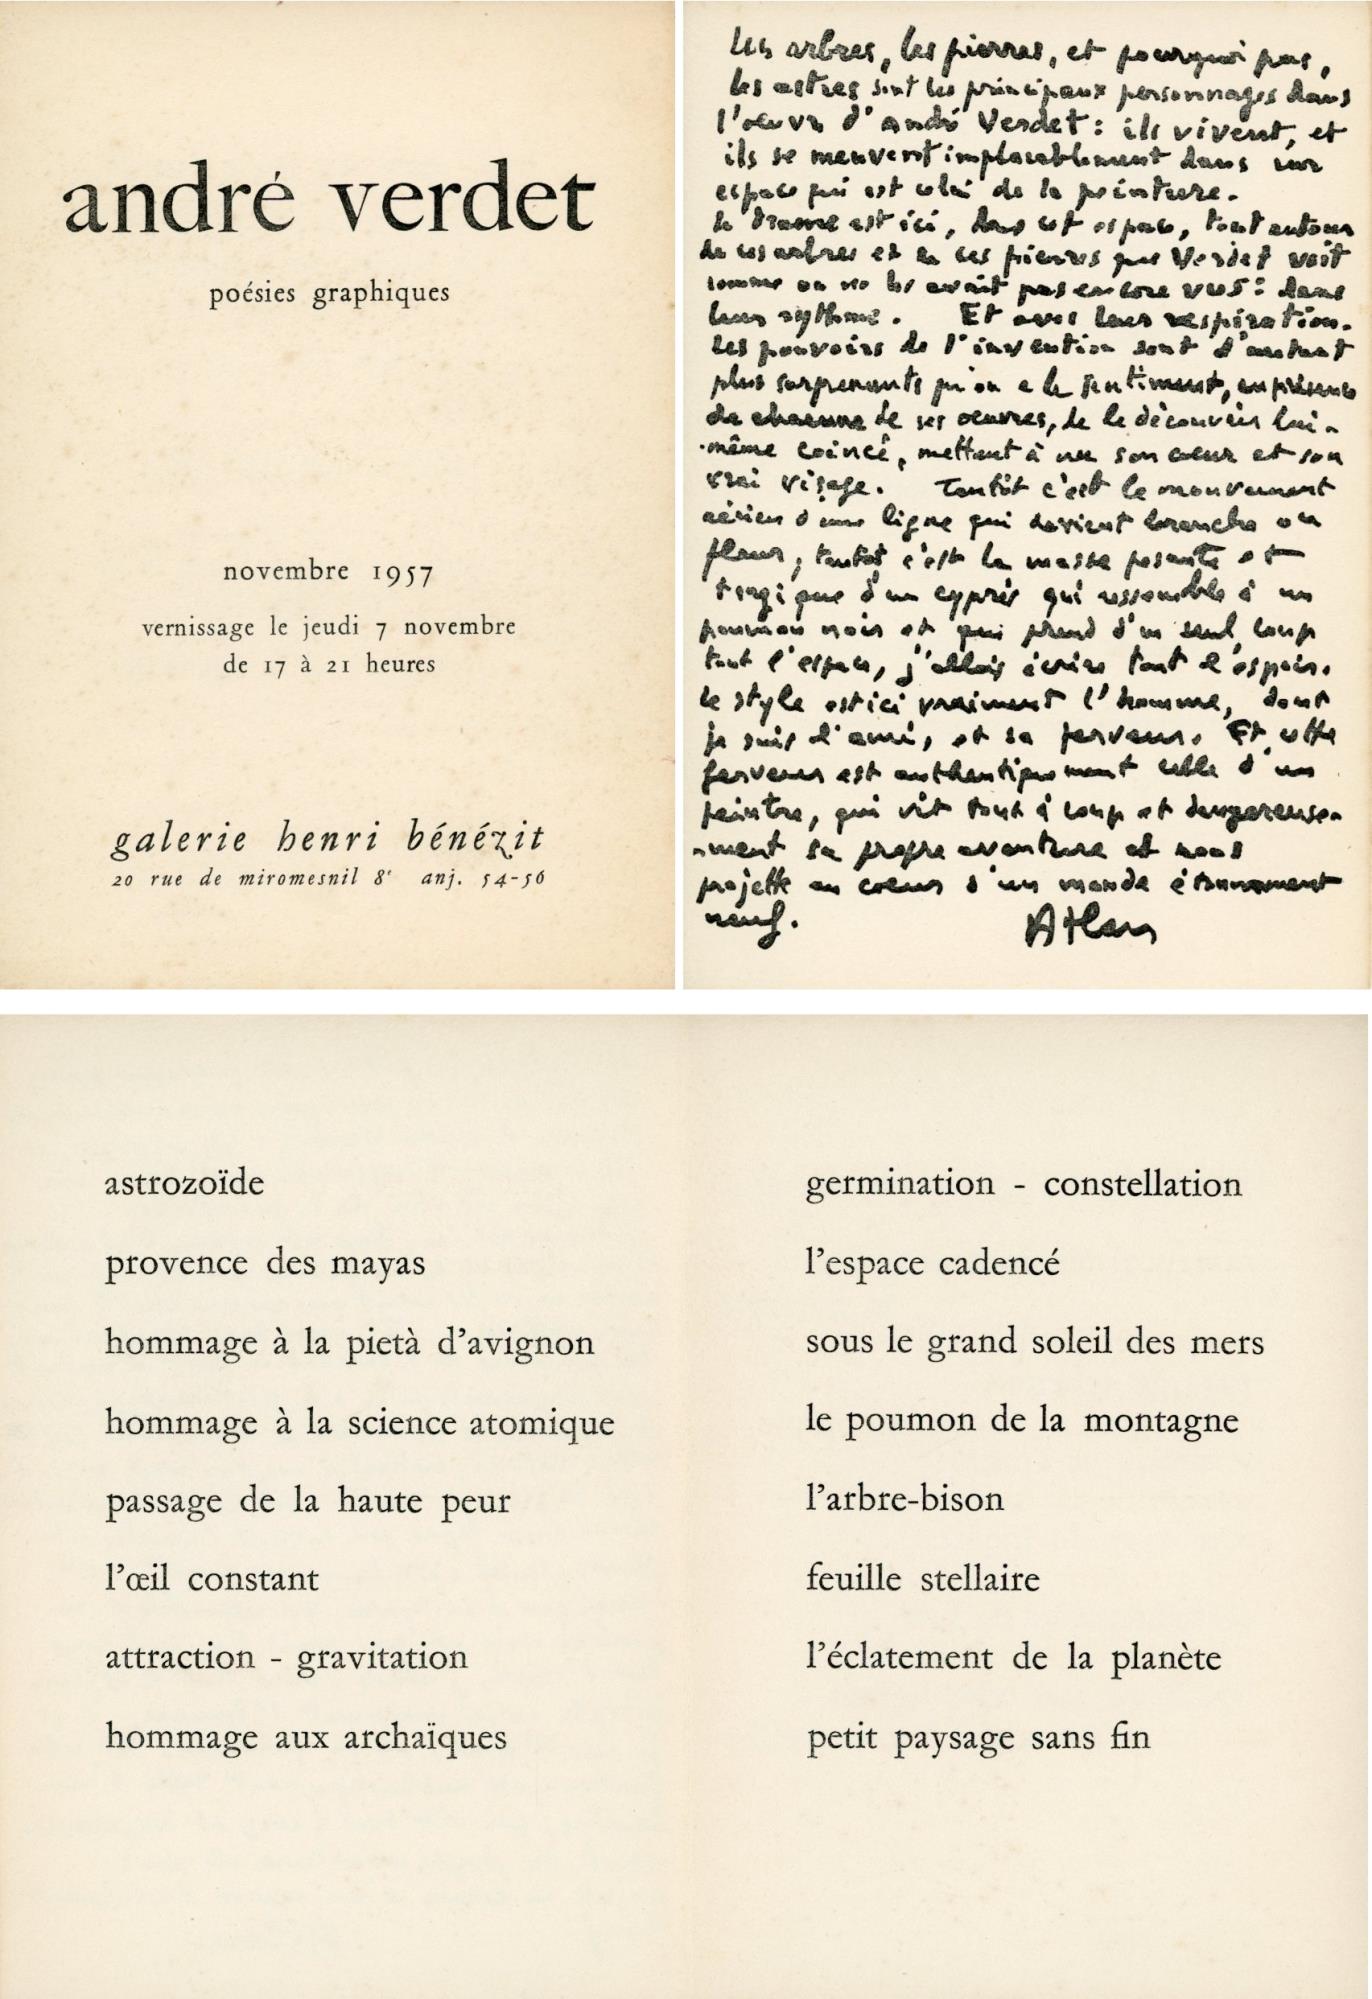 andré verdet
poésies graphiques
novembre 1957
vernissage le jeudi 7 novembre
de 17 à 21 heures
galerie henri bénézit
20 rue de miromesnil 8e anj. 54-56
Les arbres, les pierres, et pourquoi pas,
les astres sont les principaux personnages dans
l'œuvre d'andré Verdet : ils vivent, et
ils se meuvent implacablement dans un
espace qui est celui de la peinture.
Le drame est ici, dans cet espace, tout autour
de ces arbres et de ces pierres que Verdet voit
comme on ne les avait pas encore vus : dans
leur rythme. Et avec leur respiration.
Les pouvoirs de l'invention sont d'autant
plus surprenants qu'on a le sentiment, en présence
de chacune de ses œuvres, de le découvrir lui-
-même coincé, mettant à nu son cœur et son
vrai visage. Tantôt c'est le mouvement
aérien d'une ligne qui devient branche ou
fleur, tantôt c'est la masse pesante et
tragique d'un cyprès qui ressemble à un
poumon noir et qui prend d'un seul coup
tout l'espace, j'allais écrire tout l'espoir.
Le style est ici vraiment l'homme, dont
je suis l'ami, et sa ferveur. Et cette
ferveur est authentiquement celle d'un
peintre, qui vit tout à coup et dangereuse-
-ment sa propre aventure et nous
projette au cœur d'un monde étonnamment
neuf. Atlan
astrozoïde
provence des mayas
hommage à la pietà d'avignon
hommage à la science atomique
passage de la haute peur
l'œil constant
attraction - gravitation
hommage aux archaïques
germination - constellation
l'espace cadencé
sous le grand soleil des mers
le poumon de la montagne
l'arbre-bison
feuille stellaire
l'éclatement de la planète
petit paysage sans fin